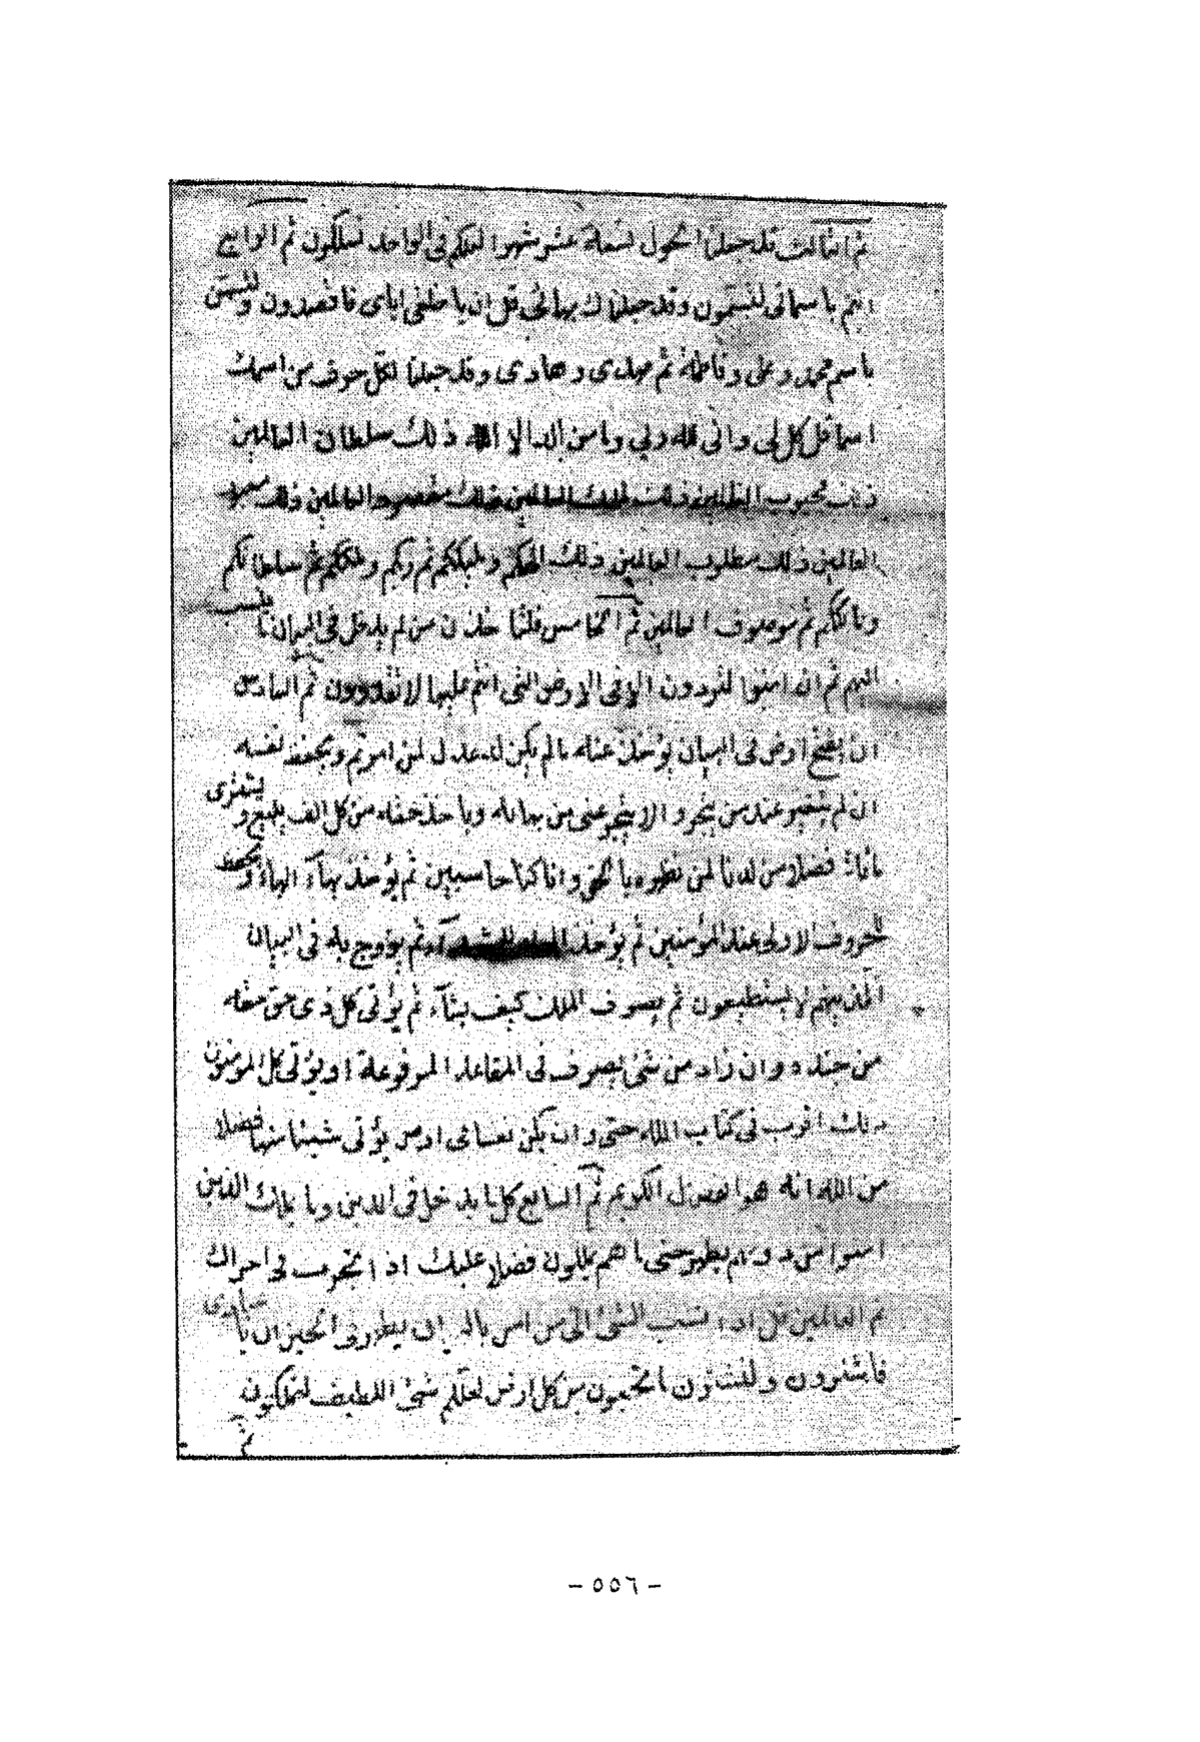 ثم الثالث قد جعلنا الحول تسعة عشر شهرا لعلكم في الواحد تسلكون ثم الرابع
انتم باسمائي لتسمون وقد جعلناك بهائي قل ان يا خلقي اياي فاقصدون ولتسمين
باسم محمد وعلي وفاطمة ثم مهدي وهادي وقد جعلنا لكل حرف من اسمك
اسما قل كل لي واني لله ربي وما من اله الا الله ذلك سلطان العالمين
ذلك محبوب العالمين ذلك ملك العالمين ذلك مقصود العالمين ذلك
العالمين ذلك مطلوب العالمين ذلك الهكم ومليككم ثم ربكم وملككم ثم سلطانكم
ومالككم ثم موصوف العالمين ثم الخامس قلنا خذن من لم يدخل في البيان ما ينسب
اليهم ثم ان امنوا لتردون الا في الارض التي انتم عليها لا تقدرون ثم السادس
ان يفتح ارض في البيان يؤخذ عنه ما لم يكن له عدل لمن امرتم ويحفظ لنفسه
ان لم يتغير عند من يتجر والا يتجر عني من بهائه وياخذ حقه من كل الف
مائة فضلا من لدنا لمن نظهره بالحق وانا كنا حاسبين ثم يؤخذ بهاء الهاء
لحروف الاولى عند المؤمنين ثم يؤخذ ثم يزوج به في البيان
الذينهم لا يستطيعون ثم يصرف الملك كيف يشاء ثم يؤتى كل ذي حق حقه
من جنده وان زاد من شئ يصرف في المقاعد المرفوعة او يؤتى كل المؤمنون
ذلك اقرب في كتاب الله حتى وان يكن نفسا في ارض يؤتى شيئا منها فضلا
من الله انه هو الفضال الكريم ثم السابع كل ما يدخل في الدين وما يملك الذين
امنوا من دونهم يطهر حتى ما هم يملكون فضلا عليك اذ انتجرت في
ثم العالمين قل اذا نسب الشئ الى من امن بالبيان يطهر في الحين ان يا عبادي
فاشكرون ولتنشئون ما تحبون من كل ارض لعلكم شئ اللطيف لتملكون
ثم
- ٥٥٦ -